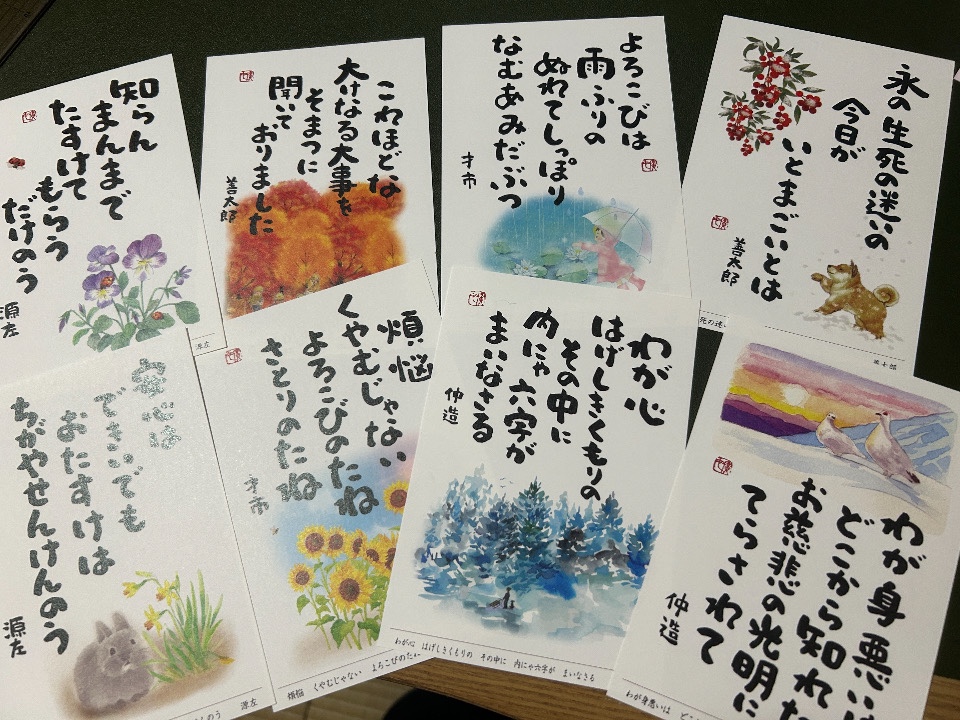 知らん
まんまで
たすけて
もらう
だけのう
源左
源左
これほどな
大けなる大事を
そまつに
聞いて
おりました
善太郎
よろこびは
雨ふりの
ぬれてしっぽり
なむあみだぶつ
才市
永の生死の迷いの
今日が
いとまごいとは
善太郎
死の迷い
善太郎
安心は
できいでも
おたすけは
ちがやせんけんのう
源左
んのう 源左
煩悩
くやむじゃない
よろこびのたね
さとりのたね
才市
煩悩 くやむじゃない よろこびのた
わが心
はげしきくもりの
その中に
内にゃ六字が
まいなさる
仲造
わが心 はげしきくもりの その中に 内にゃ六字が まいなさる
わが身悪い
どこから知れた
お慈悲の光明に
てらされて
仲造
わが身悪いは ど